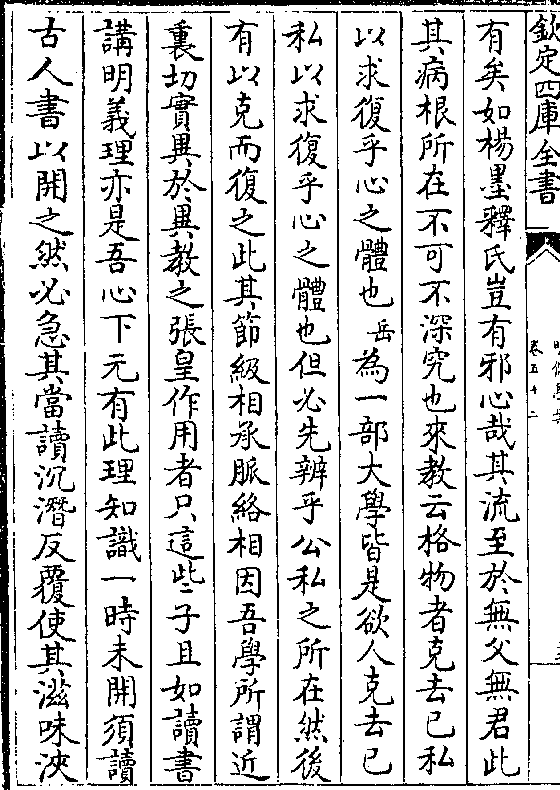 欽定四庫全書
卷五十二
有矣如楊墨釋氏豈有邪心哉其流至於無父無君此
其病根所在不可不深究也來教云格物者克去已私
以求復乎心之體也岳為一部大學皆是欲人克去已
私以求復乎心之體也但必先辨乎公私之所在然後
有以克而復之此其節級相承脈絡相因吾學所謂近
裏切實異於異教之張皇作用者只這些子且如讀書
講明義理亦是吾心下元有此理知識一時未開須讀
古人書以開之然必急其當讀沉潛反覆使其滋味浹